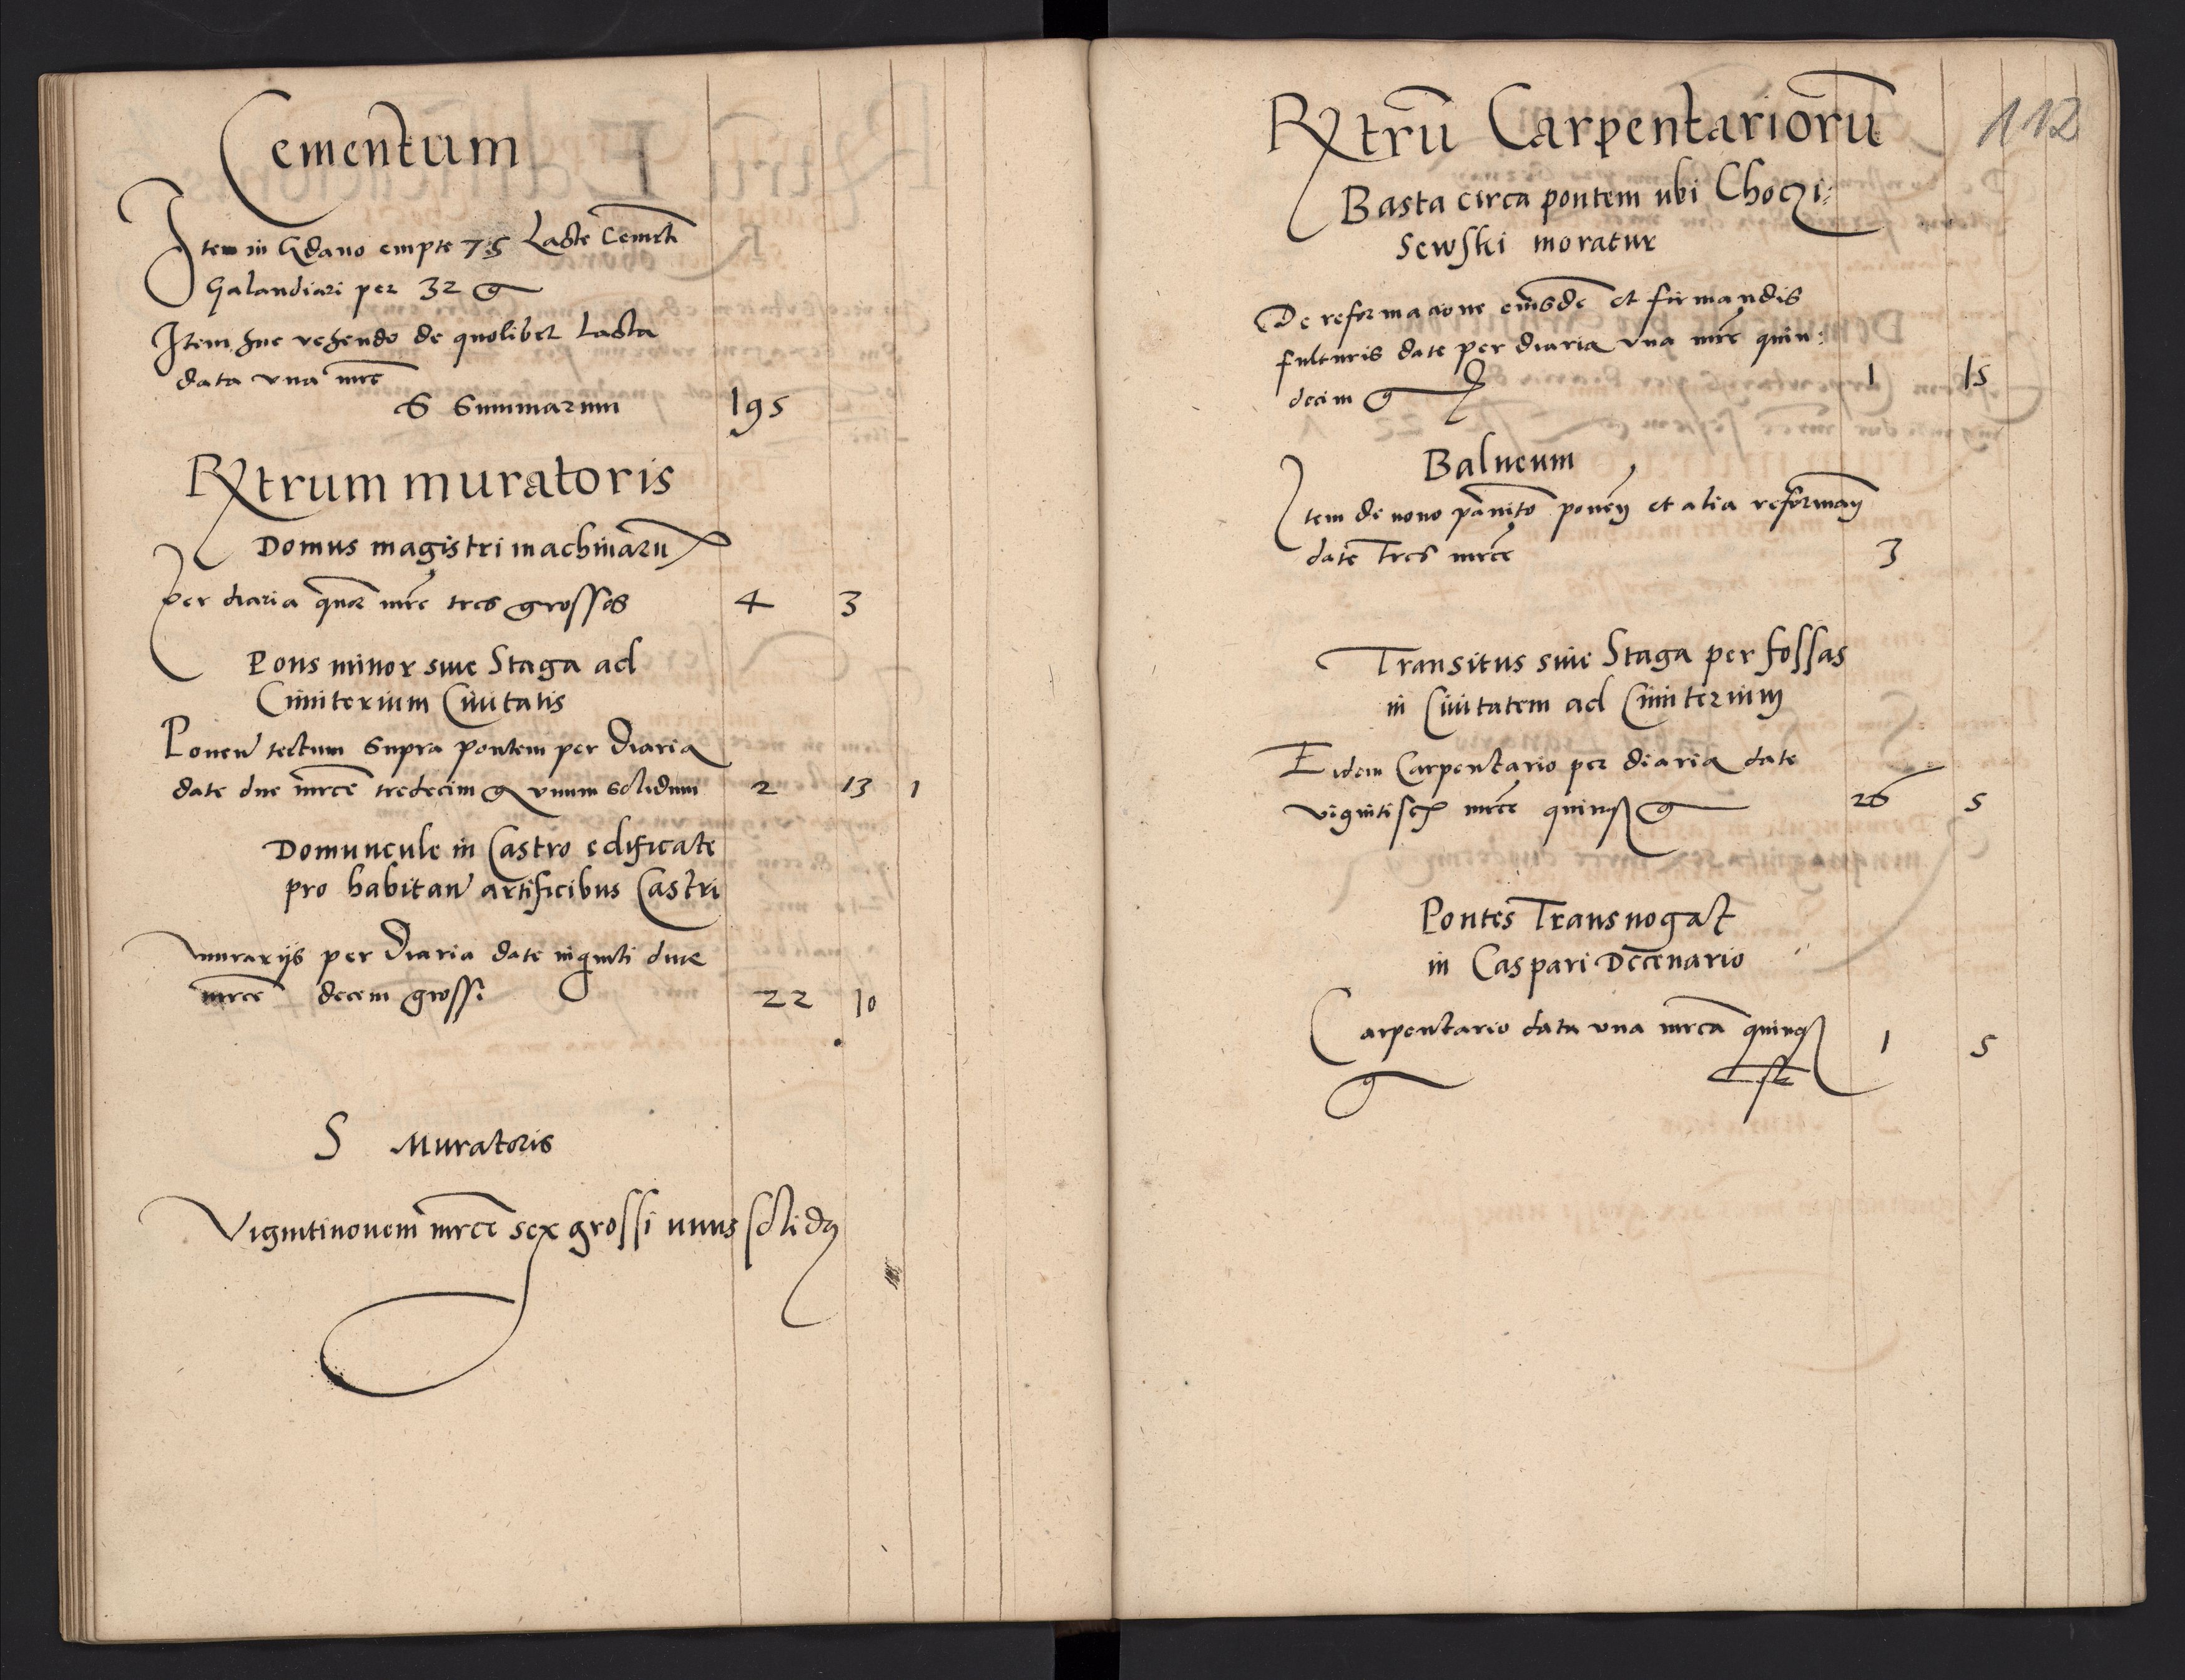 Cementum
Item in Gdano empte 75 Laste Cemēti
Galandiari per 32 g
Item huc vehendo de quolibet Lasta
data vna mrc̄
S Summarum 195
Rxtrum muratoris
Domus magistri machinarū
per diaria quor mrc̄ tres grossos 4 3
Pons minor siue Staga ad
Cimiterium Ciuitatis
Ponen tectum Supra pontem per Diaria
date due mrce tredecim g vnum Solidum 2 13 1
Domuncule in Castro edificate
pro habitan artificibus Castri
murarijs per Diaria date viginti due
mrce decem grossi 22 10
S Muratoris
Vigintinouem mrce sex grossi unus solidꝯ
112
Rxtrū Carpentariorū
Basta circa pontem ubi Choczi:
Sewski moratur
De reformacione eiusdē et firmandis
fulturis date per diaria vna mrc̄ quin:
decim g 1 15
Balneum
Item de nouo pauimto ponen et alia reforman
date Tres mrce 3
Transitus siue Staga per fossas
in Ciuitatem ad Cimiterium
Eidem Carpentario per diaria date
vigintisex mrce quinqȝ g 26 5
Pontes Transnogat
in Caspari Dēcenario
Carpentario data vna mrca quinqȝ 1 5
g